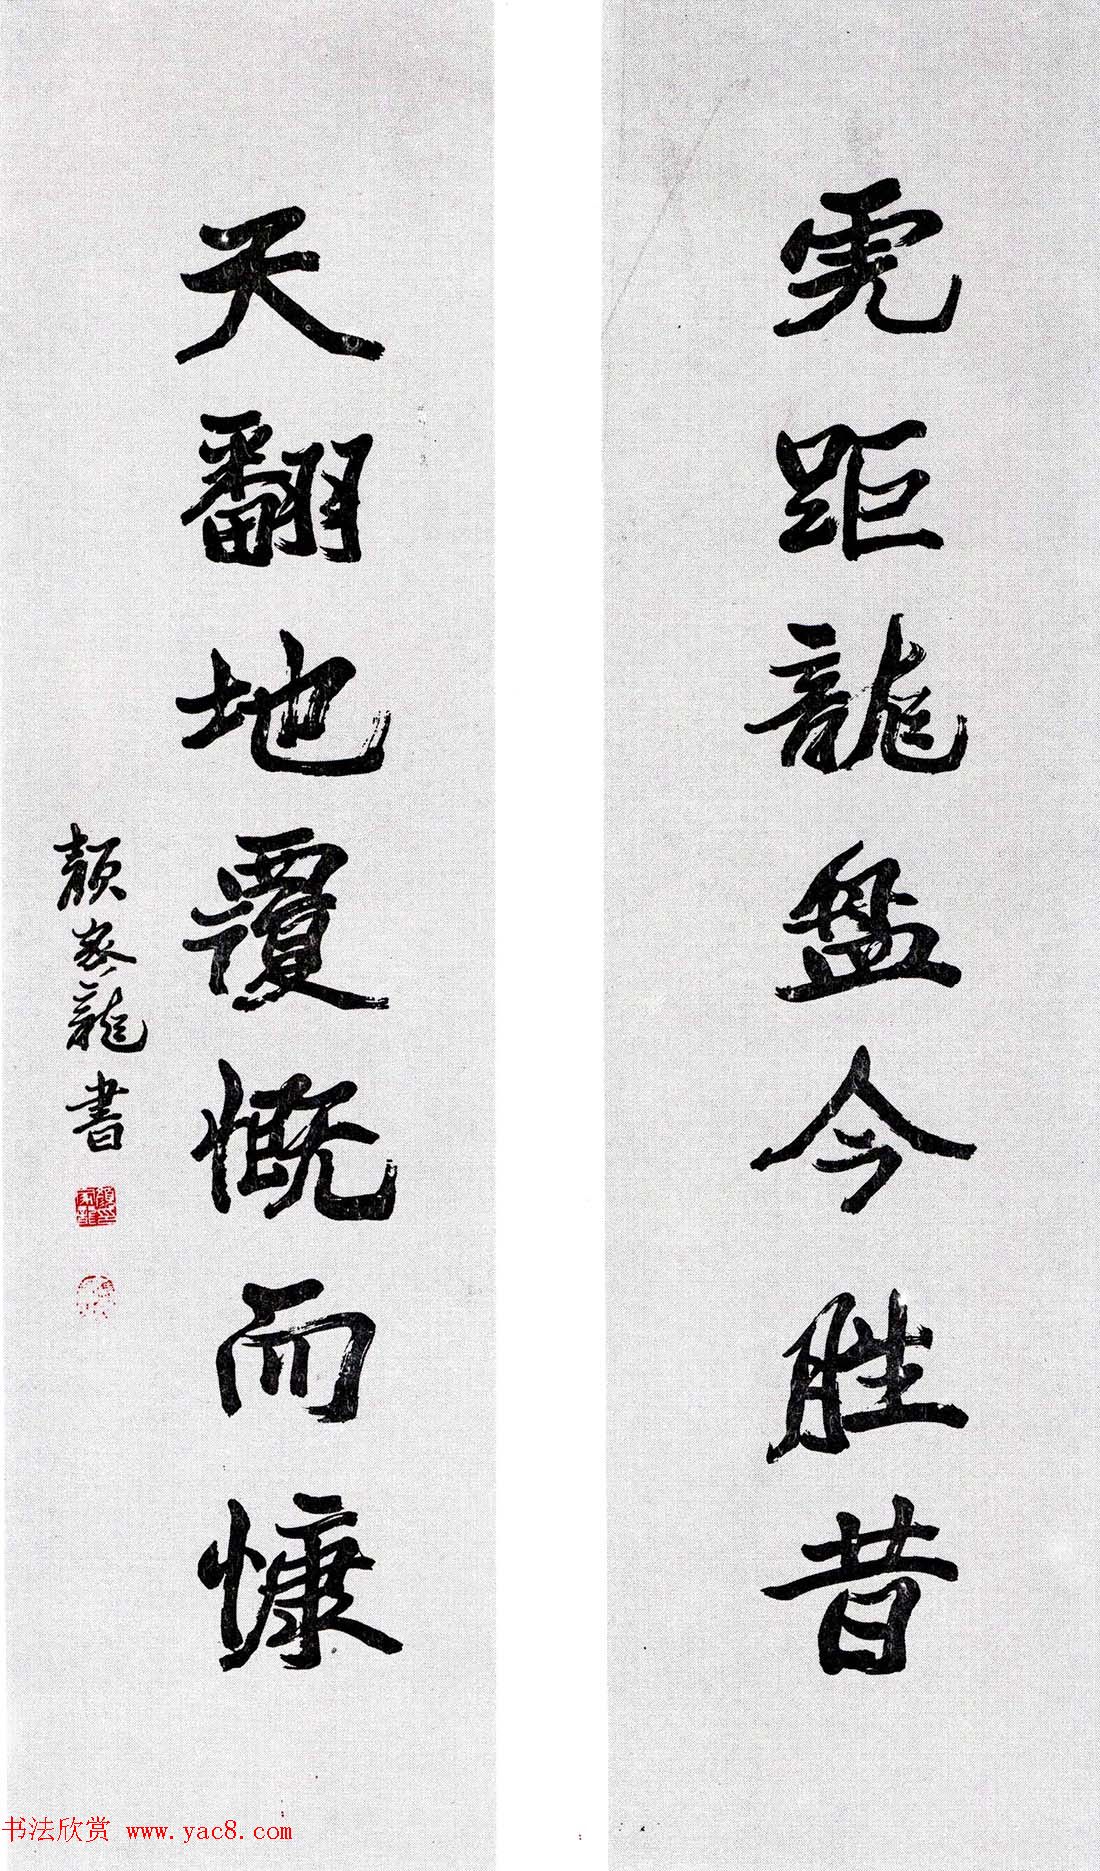 虎距龍盤今胜昔
天翻地覆慨而慷
顏家龍書
书法欣赏 www.yac8.com